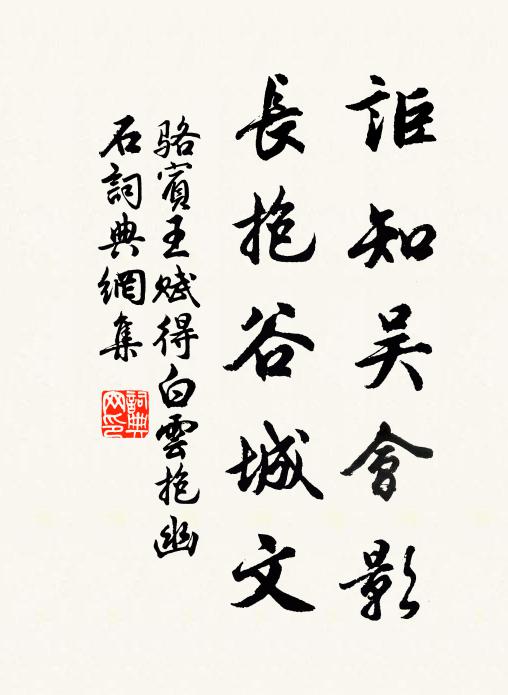 詎知吴會影
長抱谷城文
駱賓王賦得白雲抱幽
石詞典網集
詞典网印